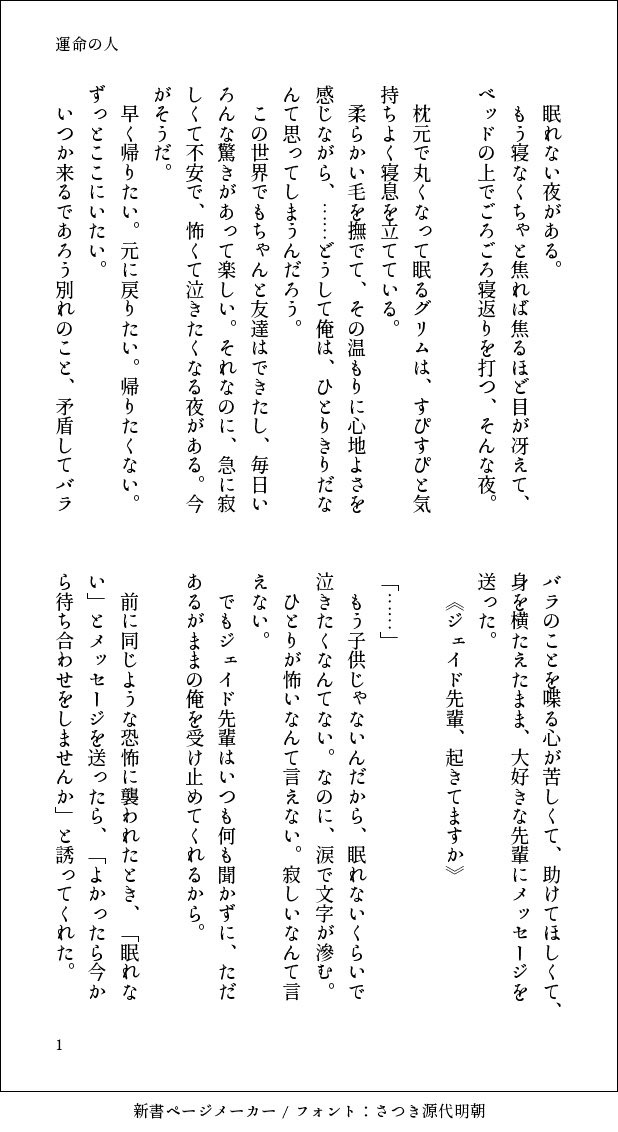 運命の人
眠れない夜がある。
もう寝なくちゃと焦れば焦るほど目が冴えて、
ベッドの上でごろごろ寝返りを打つ、そんな夜。
枕元で丸くなって眠るグリムは、すぴすぴと気
持ちよく寝息を立てている。
柔らかい毛を撫でて、その温もりに心地よさを
感じながら、……どうして俺は、ひとりきりだな
んて思ってしまうんだろう。
この世界でもちゃんと友達はできたし、毎日い
ろんな驚きがあって楽しい。それなのに、急に寂
しくて不安で、怖くて泣きたくなる夜がある。今
がそうだ。
早く帰りたい。元に戻りたい。帰りたくない。
ずっとここにいたい。
いつか来るであろう別れのこと、矛盾してバラ
バラのことを喋る心が苦しくて、助けてほしくて、
身を横たえたまま、大好きな先輩にメッセージを
送った。
《ジェイド先輩、起きてますか》
「……」
もう子供じゃないんだから、眠れないくらいで
泣きたくなんてない。なのに、涙で文字が滲む。
ひとりが怖いなんて言えない。寂しいなんて言
えない。
でもジェイド先輩はいつも何も聞かずに、ただ
あるがままの俺を受け止めてくれるから。
前に同じような恐怖に襲われたとき、「眠れな
い」とメッセージを送ったら、「よかったら今か
ら待ち合わせをしませんか」と誘ってくれた。
1
新書ページメーカー / フォント：さつき源代明朝